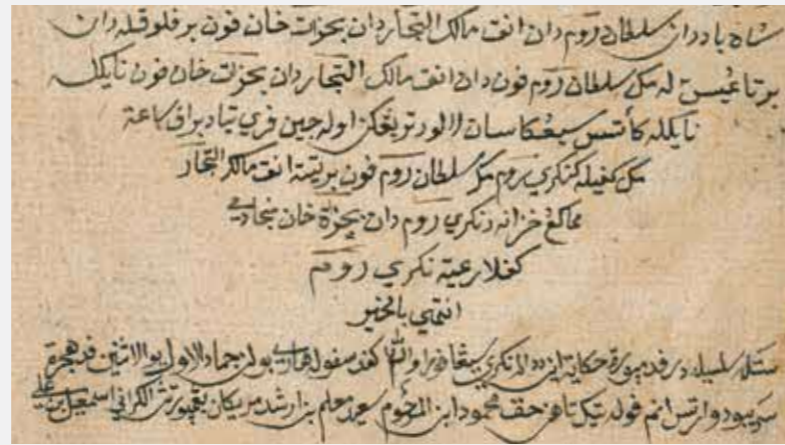 شاه بادران سلطان روم دان انق مالك التجار دان بحزات خان فون برفلوقله دان
برتاغيسن له مك سلطان روم فون دان انق مالك التجار دان بحزات خان فون نايكله
نايكله كأتس اوله جين فري تياد براف ساعة
مك كفيله كنكري روم مك سلطان روم فون انق مالك التجار
خزانه دنكري روم دان بحزة خان منجادي
كفلا رعية نكري روم
انتهى بالخير
ستله سلسيله درفد ميورة حكاية اين ددالم نكري سيڠافورا كفد سفوله هاري بولن جمادالاول يوم الاثنين فد هجرة
سريبو دوا راتس انم فوله تيك تاهن حق محمود ابن المرحوم معلم بن ارشد مريكان الكراني اسمعيل بن علي